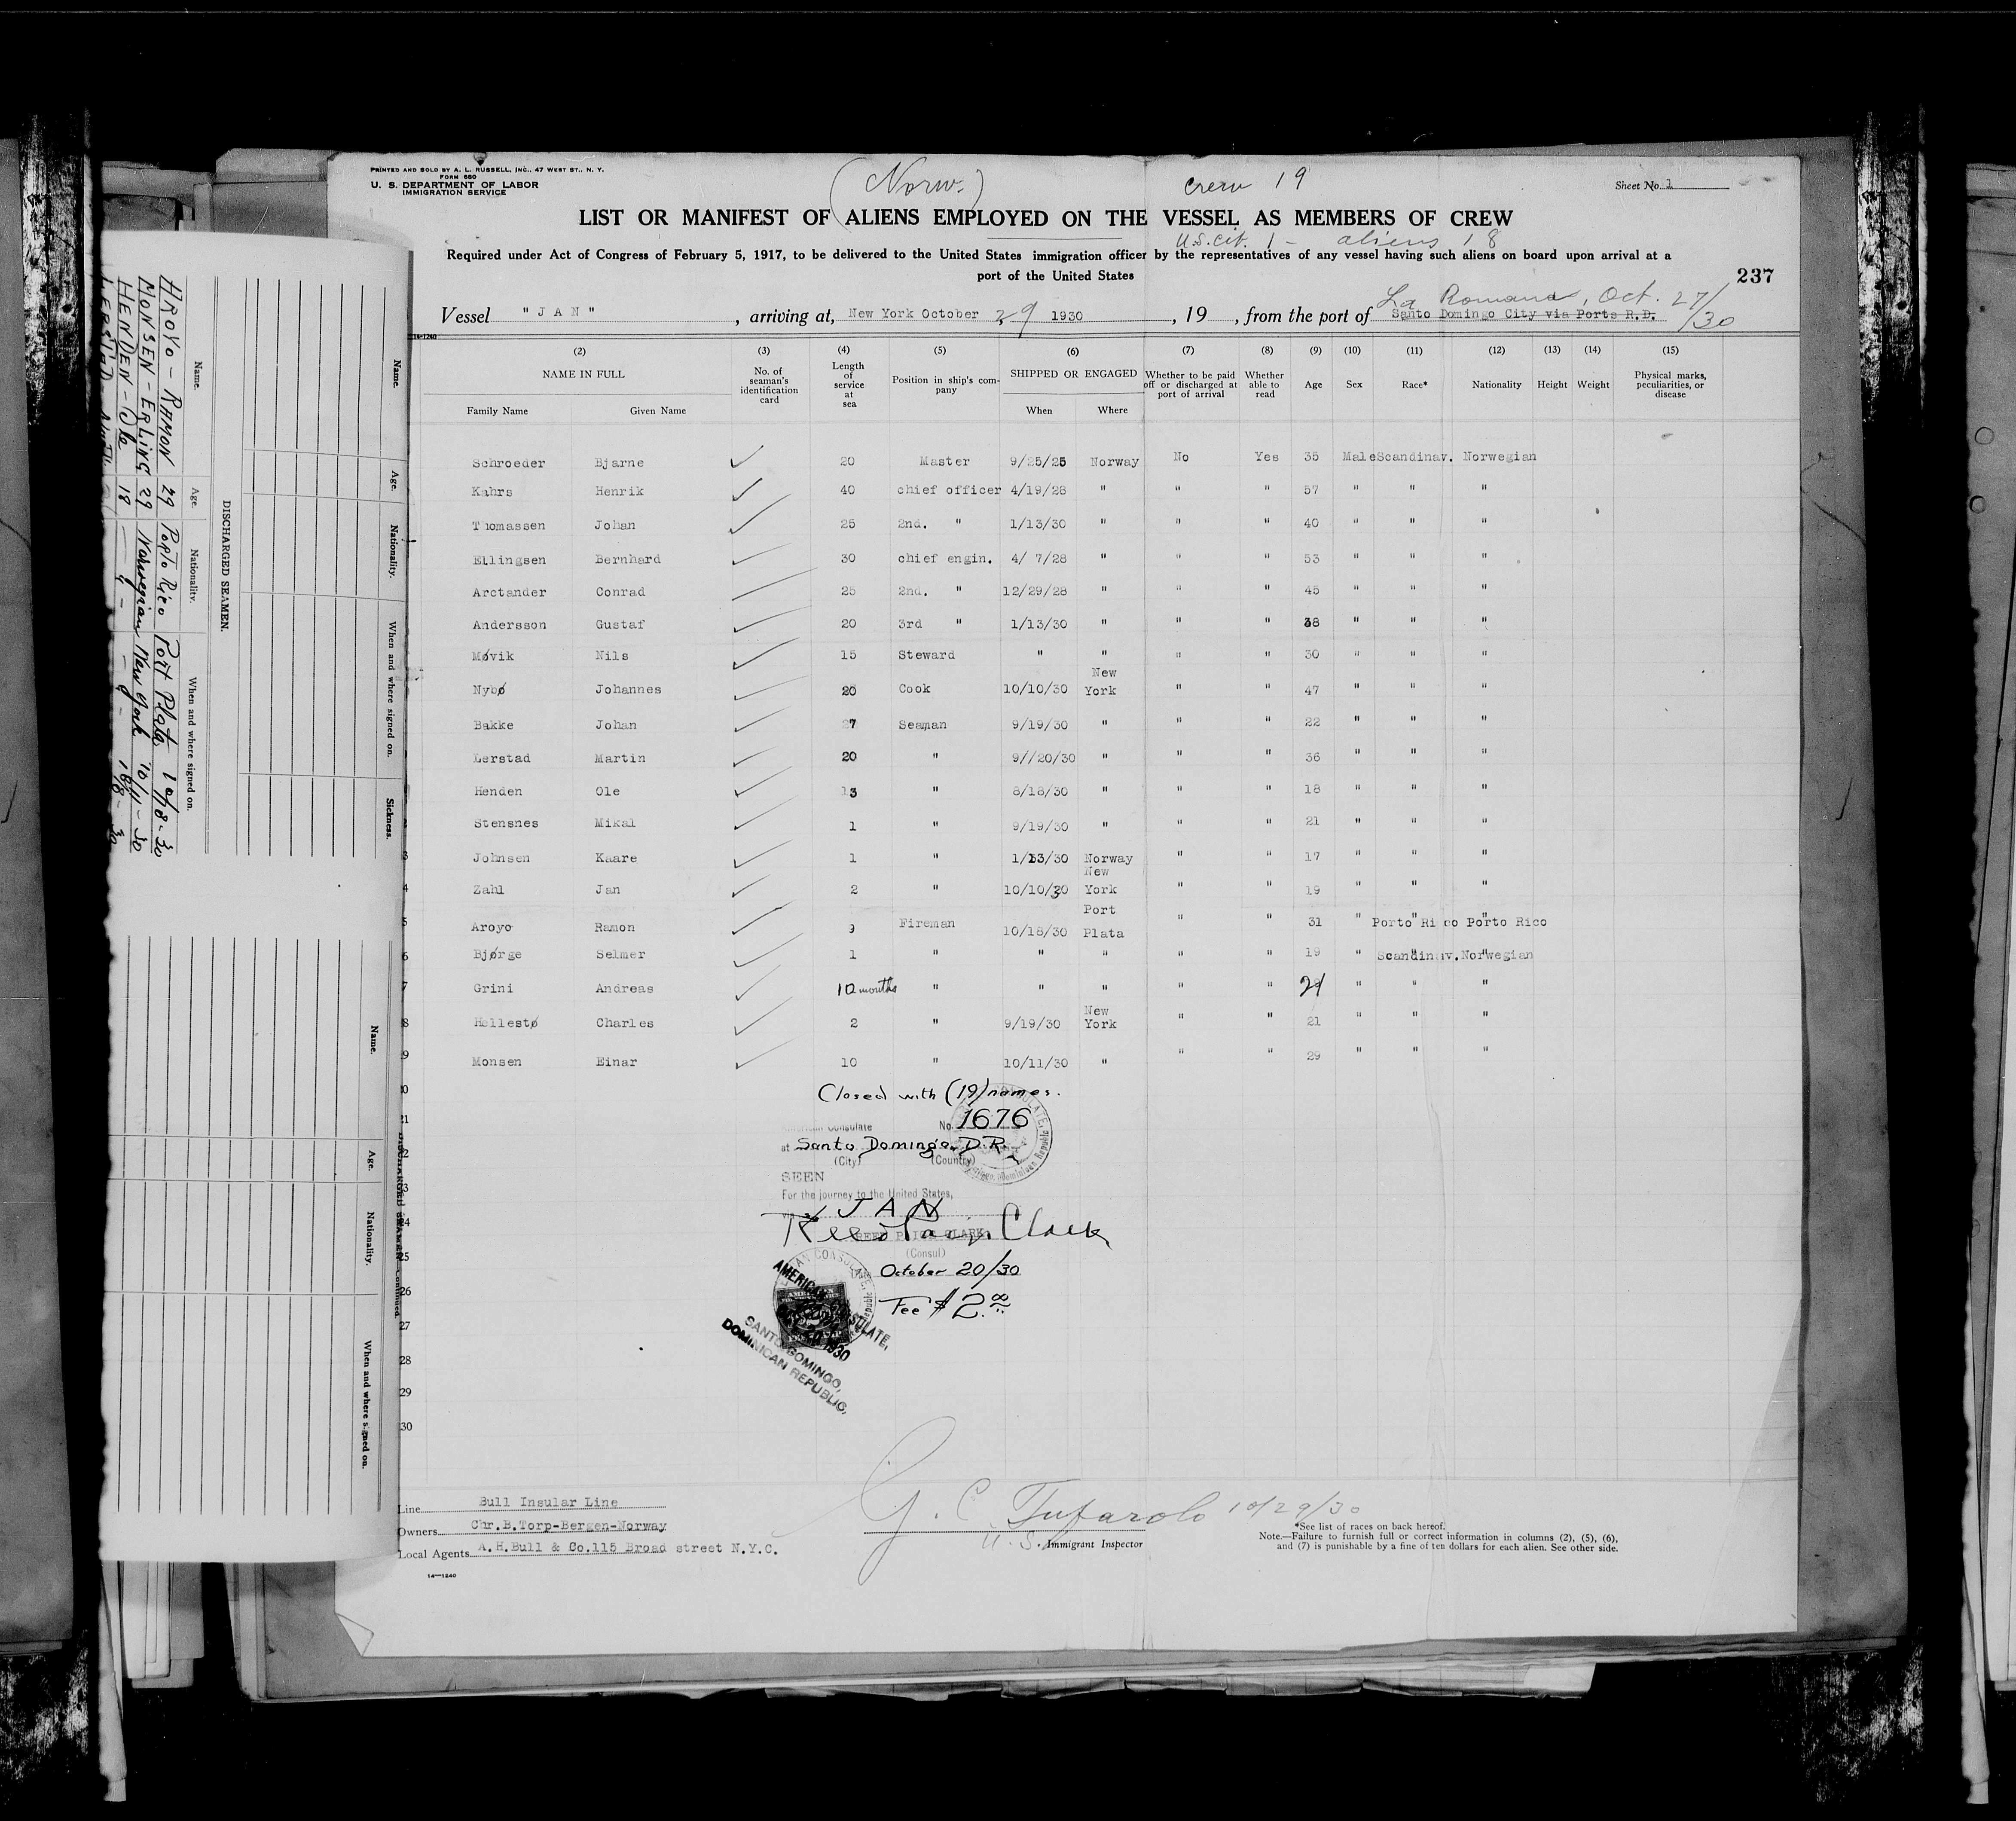 PRINTED AND SOLD BY A. L. RUSSELL, INC., 47 WEST ST., N. Y.
FORM 680
U. S. DEPARTMENT OF LABOR
IMMIGRATION SERVICE
(Norw.)
crew 19
Sheet No. 1
LIST OR MANIFEST OF ALIENS EMPLOYED ON THE VESSEL AS MEMBERS OF CREW
U.S. cit. 1 - aliens 18
Required under Act of Congress of February 5, 1917, to be delivered to the United States immigration officer by the representatives of any vessel having such aliens on board upon arrival at a
port of the United States
237
La Romana, Oct. 27/30
Vessel "JAN", arriving at, New York October 29 1930, 19, from the port of Santo Domingo City via Ports R.D.
14-1240
(2) (3) (4) (5) (6) (7) (8) (9) (10) (11) (12) (13) (14) (15)
NAME IN FULL No. of seaman's identification card Length of service at sea Position in ship's company SHIPPED OR ENGAGED Whether to be paid off or discharged at port of arrival Whether able to read Age Sex Race* Nationality Height Weight Physical marks, peculiarities, or disease
Family Name Given Name When Where
Schroeder Bjarne 20 Master 9/25/25 Norway No Yes 35 Male Scandinav. Norwegian
Kahrs Henrik 40 chief officer 4/19/28 " " " 57 " " "
Thomassen Johan 25 2nd. " 1/13/30 " " " 40 " " "
Ellingsen Bernhard 30 chief engin. 4/ 7/28 " " " 53 " " "
Arctander Conrad 25 2nd. " 12/29/28 " " " 45 " " "
Andersson Gustaf 20 3rd " 1/13/30 " " " 38 " " "
Møvik Nils 15 Steward " " " " 30 " " "
Nybø Johannes 20 Cook 10/10/30 New York " " 47 " " "
Bakke Johan 7 Seaman 9/19/30 " " " 22 " " "
Lerstad Martin 20 " 9//20/30 " " " 36 " " "
Henden Ole 3 " 8/18/30 " " " 18 " " "
Stensnes Mikal 1 " 9/19/30 " " " 21 " " "
3 Johnsen Kaare 1 " 1/13/30 Norway " " 17 " " "
4 Zahl Jan 2 " 10/10/30 New York " " 19 " " "
5 Aroyo Ramon 9 Fireman 10/18/30 Port Plata " " 31 " Porto Rico Porto Rico
6 Bjørge Selmer 1 " " " " " 19 " Scandinav. Norwegian
7 Grini Andreas 10 months " " " " " 21 " " "
8 Hellestø Charles 2 " 9/19/30 New York " " 21 " " "
9 Monsen Einar 10 " 10/11/30 " " " 29 " " "
Closed with (19) names.
American Consulate No. 1676
at Santo Domingo, D.R.
(City) (Country)
SEEN
For the journey to the United States,
JAN
Reed Paige Clark
REED PAIGE CLARK
(Consul)
October 20/30
Fee $2.00
AMERICAN CONSULATE,
1930
SANTO DOMINGO,
DOMINICAN REPUBLIC.
24
25
26
27
28
29
30
Line Bull Insular Line
Owners Chr.B.Torp-Bergen-Norway
Local Agents A.H.Bull & Co.115 Broad street N.Y.C.
14-1240
G. C. Tufarolo 10/29/30
U. S. Immigrant Inspector
*See list of races on back hereof.
Note.—Failure to furnish full or correct information in columns (2), (5), (6),
and (7) is punishable by a fine of ten dollars for each alien. See other side.
Name. Age. Nationality. When and where signed on. Sickness.
DISCHARGED SEAMEN.
Name. Age. Nationality. When and where signed on.
AROYO - RAMON 29 Porto Rico Port Plata 10/18-30
MONSEN - ERLING 29 Norwegian New York 10/11-30
HENDEN - Ole 18
LERSTAD
Name. Age. Nationality. When and where signed on.
DISCHARGED SEAMEN—Continued.